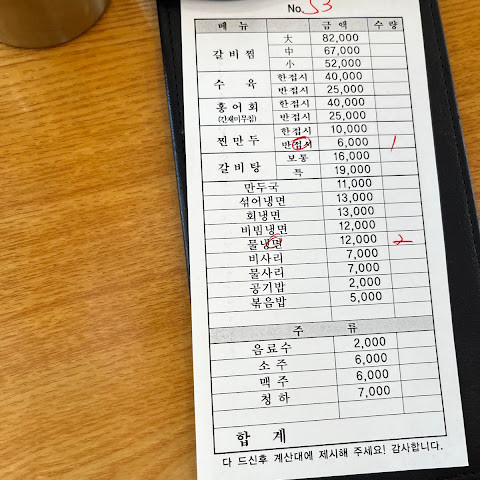 No. 53
메 뉴 금 액 수 량
갈비찜 大 82,000
中 67,000
小 52,000
수 육 한접시 40,000
반접시 25,000
홍어회 한접시 40,000
(간재미무침) 반접시 25,000
찐만두 한접시 10,000
반접시 6,000 1
갈비탕 보통 16,000
특 19,000
만두국 11,000
섞어냉면 13,000
회냉면 13,000
비빔냉면 12,000
물냉면 12,000 2
비사리 7,000
물사리 7,000
공기밥 2,000
볶음밥 5,000
주 류
음료수 2,000
소 주 6,000
맥 주 6,000
청 하 7,000
합 계
다 드신후 계산대에 제시해 주세요! 감사합니다.